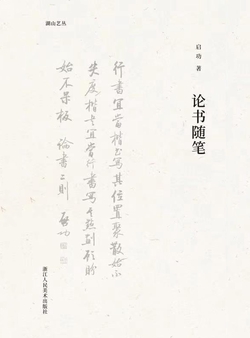 湖山艺丛
启功 著
论书随笔
行书宜当楷书写其位置聚散始不
失度楷书宜当行书写其点划顾盼
始不呆板 论书二则 启功
浙江人民美术出版社